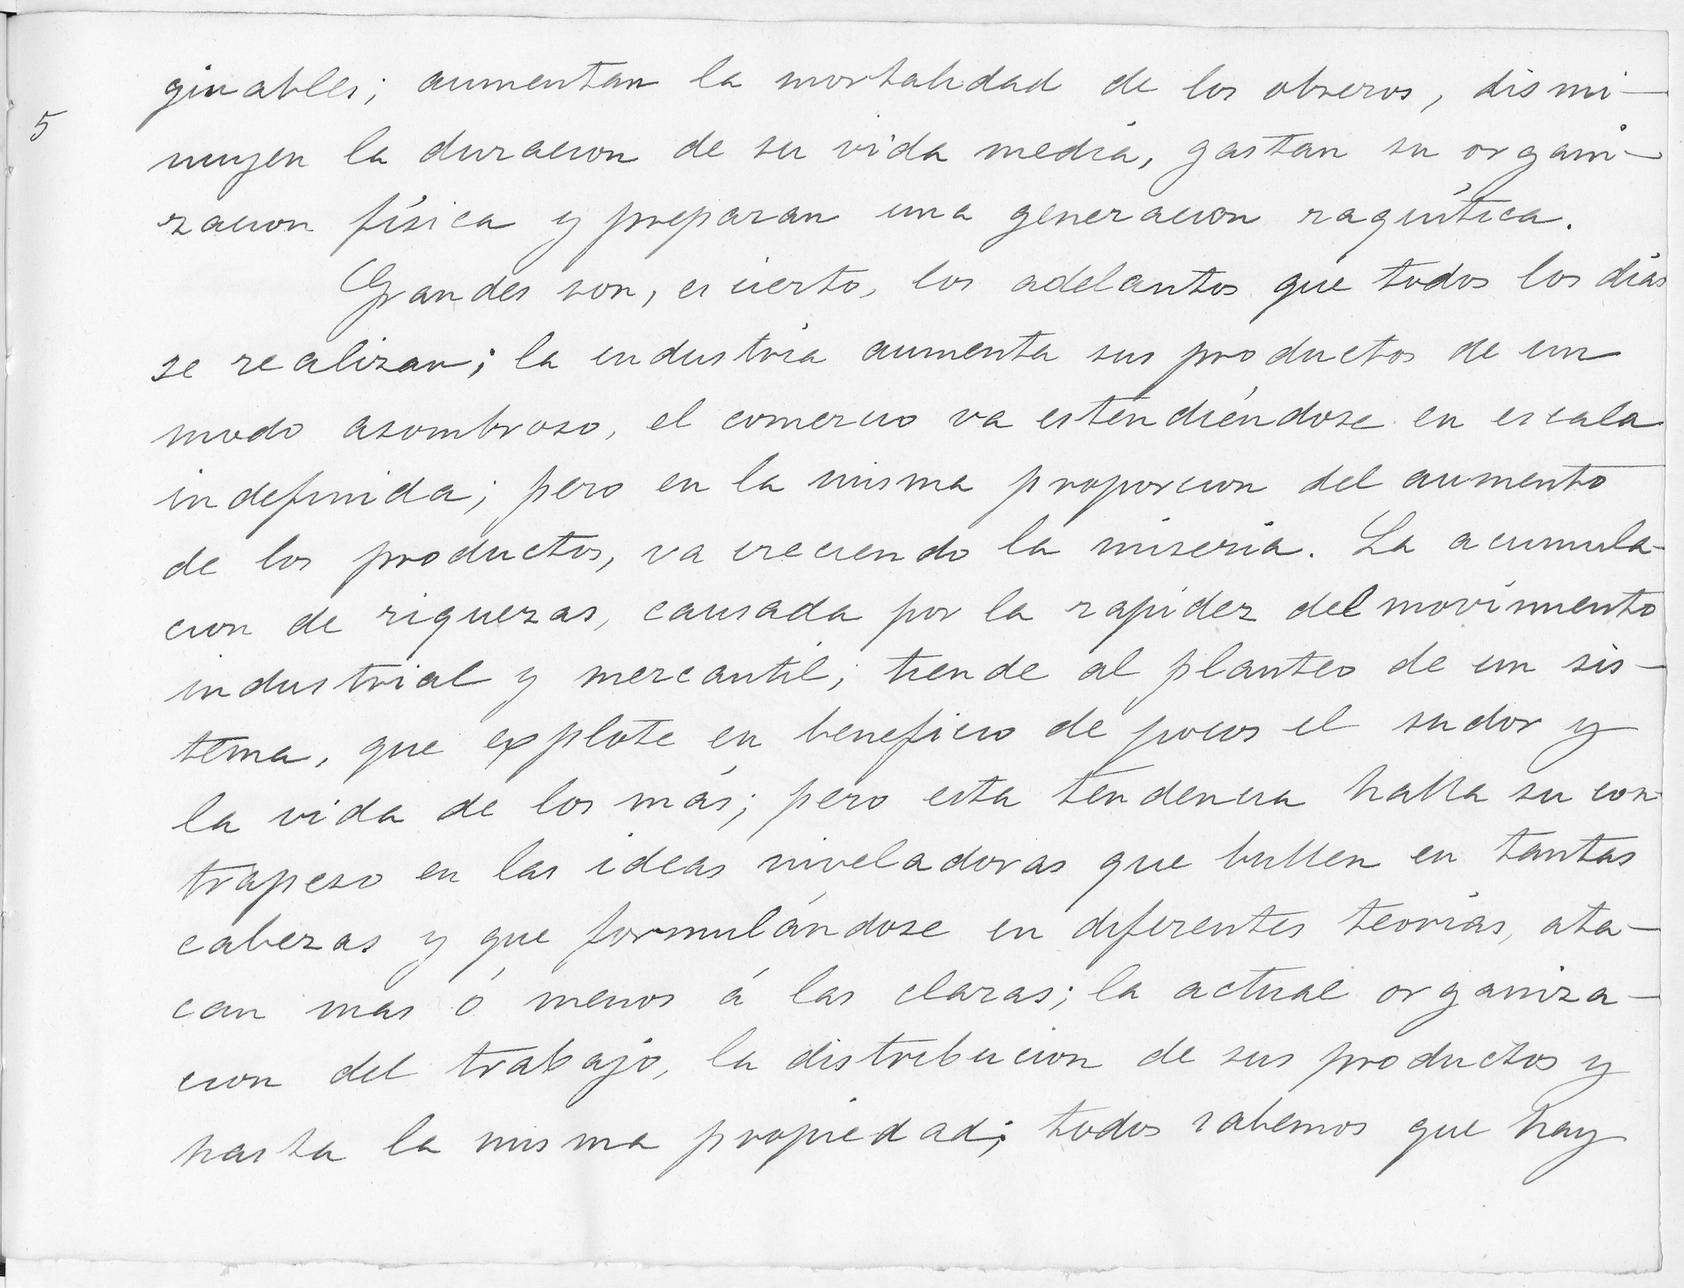 ginables; aumentan la mortalidad de los obreros, dismi-
5
nuyen la duracion de su vida media, gastan su organi-
zacion física y preparan una generacion raquítica.
Grandes son, es cierto, los adelantos que todos los dias
se realizan; la industria aumenta sus productos de un
modo asombroso, el comercio va estendiéndose en escala
indefinida; pero en la misma proporcion del aumento
de los productos, va creciendo la miseria. La acumula-
cion de riquezas, causada por la rapidez del movimiento
industrial y mercantil; tiende al planteo de un sis-
tema, que explote en beneficio de pocos el sudor y
la vida de los más; pero esta tendencia halla su con-
trapeso en las ideas niveladoras que bullen en tantas
cabezas y que formulándose en diferentes teorias, ata-
can mas ó menos á las claras; la actual organiza-
cion del trabajo, la distribucion de sus productos y
hasta la misma propiedad; todos sabemos que hay